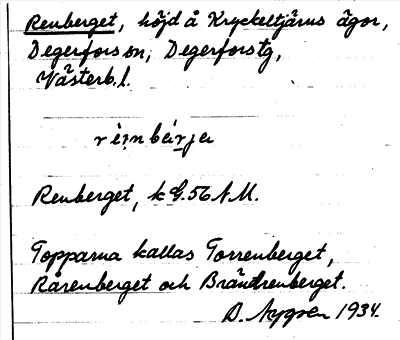 Renberget, höjd å Kryckeltjärns ägor,
Degerfors sn, Degerfors tg,
Västerb. l.
Renberget, k G. 56 N.M.
Topparna kallas Torrenberget,
Rårenberget och Brändrenberget.
D. Nygren 1934.